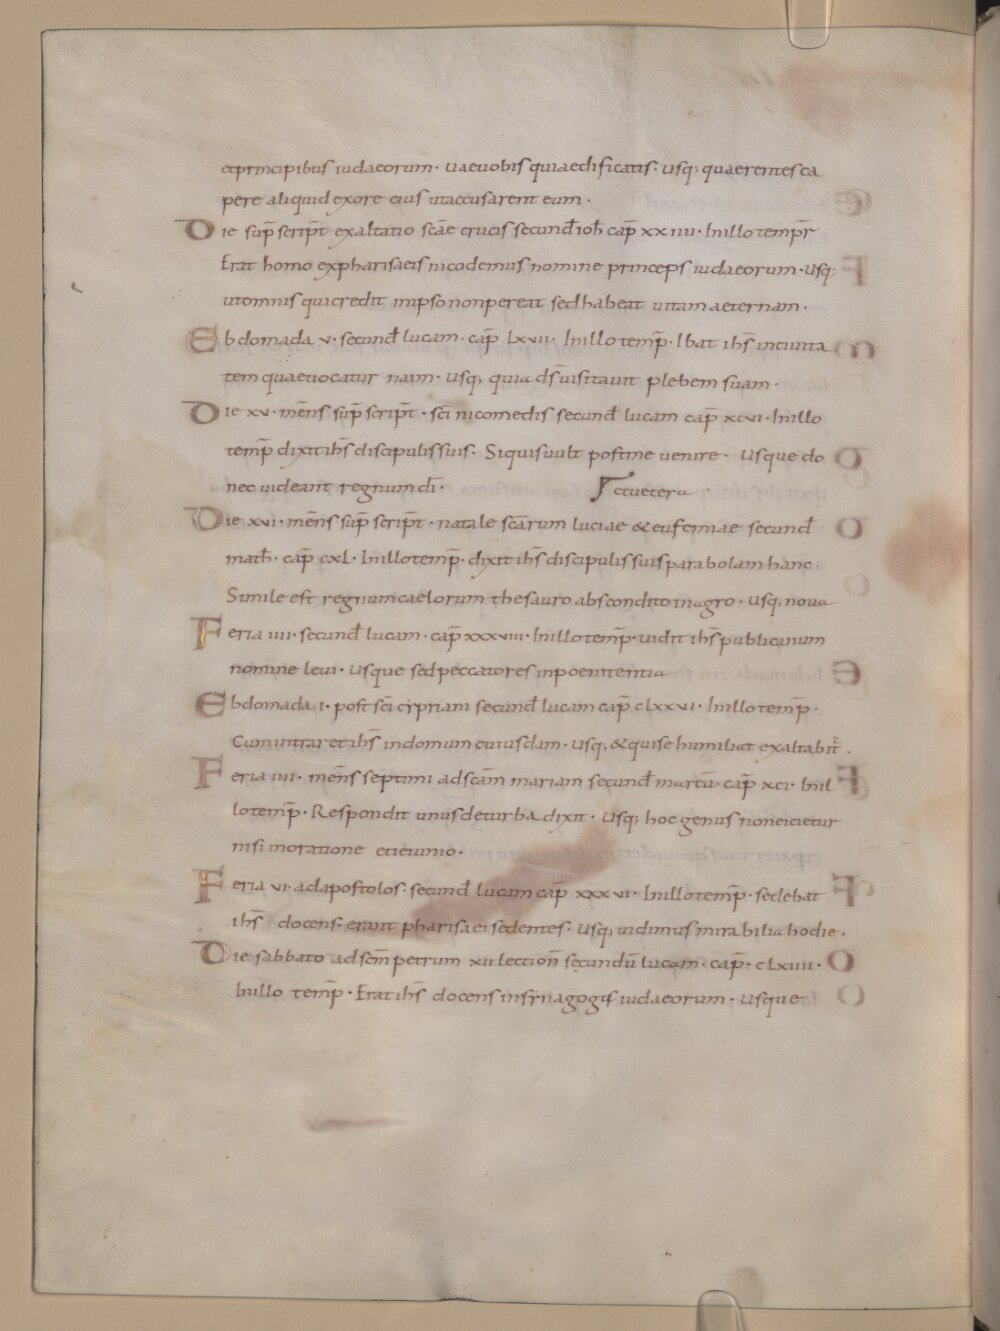 et principibus iudaeorum · Uae uobis qui aedificatis · usq; quaerentes ca
pere aliquid ex ore eius ut accusarent eum ·
Die sup̄ scrip̄t exaltatio scāe crucis secund̄ ioh̄ cap̄ xxiiii · In illo temp̄r
Erat homo ex pharisaeis nicodemus nomine princeps iudaeorum · usq;
ut omnis qui credit in ipso non pereat sed habeat uitam aeternam ·
Ebdomada v · secund̄ lucam · cap̄ lxvii · In illo temp̄ · Ibat ih̄s in ciuita
tem quae uocatur naim · usq; quia d̄s uisitauit plebem suam ·
Die xv · mēns sup̄ scrip̄t · sc̄i nicomedis secund̄ lucam cap̄ xcvi · In illo
temp̄ dixit ih̄s discipulis suis · Si quis uult post me uenire · usque do
nec uideant regnum d̄i · et uetera
Die xvi · mēns sup̄ scrip̄t · natale scārum luciae & eufemiae secund̄
math̄ · cap̄ cxl · In illo temp̄ · dixit ih̄s discipulis suis parabolam hanc ·
Simile est regnum caelorum thesauro abscondito in agro · usq; noua
Feria iiii · secund̄ lucam · cap̄ xxxviii · In illo temp̄ · uidit ih̄s publicanum
nomine leui · usque sed peccatores in poenitentia
Ebdomada i · post sc̄i cypriani secund̄ lucam cap̄ clxxvi · In illo temp̄ ·
Cum intraret ih̄s in domum cuiusdam · usq; & qui se humiliat exaltabit̄ ·
Feria iiii · mēns septimi ad scām mariam secund̄ marcū · cap̄ xci · In il
lo temp̄ · Respondit unus de turba dixit · usq; hoc genus non eicietur
nisi in oratione et ieiunio ·
Feria vi · ad apostolos · secund̄ lucam cap̄ xxxvi · In illo temp̄ · sedebat
ih̄s docens · erant pharisaei sedentes · usq; uidimus mirabilia hodie ·
Die sabbato ad scm̄ petrum xii lectioñ secundū lucam · cap̄ · clxiiii ·
In illo temp̄ · Erat ih̄s docens in synagogis iudaeorum · usque